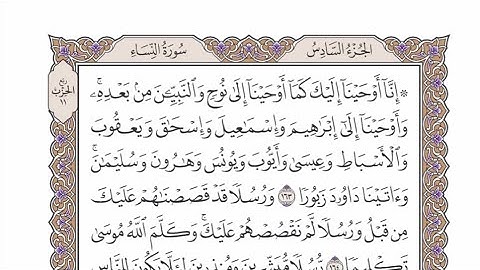 الجُزْءُ السَّادِسُ
سُورَةُ النِّسَاءِ
ربع
الحزب
١١
۞ إِنَّآ أَوْحَيْنَآ إِلَيْكَ كَمَآ أَوْحَيْنَآ إِلَىٰ نُوحٍ وَٱلنَّبِيِّـۧنَ مِنۢ بَعْدِهِۦۚ
وَأَوْحَيْنَآ إِلَىٰٓ إِبْرَٰهِيمَ وَإِسْمَٰعِيلَ وَإِسْحَٰقَ وَيَعْقُوبَ
وَٱلْأَسْبَاطِ وَعِيسَىٰ وَأَيُّوبَ وَيُونُسَ وَهَٰرُونَ وَسُلَيْمَٰنَۚ
وَءَاتَيْنَا دَاوُۥدَ زَبُورًا ١٦٣ وَرُسُلًا قَدْ قَصَصْنَٰهُمْ عَلَيْكَ
مِن قَبْلُ وَرُسُلًا لَّمْ نَقْصُصْهُمْ عَلَيْكَۚ وَكَلَّمَ ٱللَّهُ مُوسَىٰ
تَكْلِيمًا ١٦٤ رُّسُلًا مُّبَشِّرِينَ وَمُنذِرِينَ لِئَلَّا يَكُونَ لِلنَّاسِ